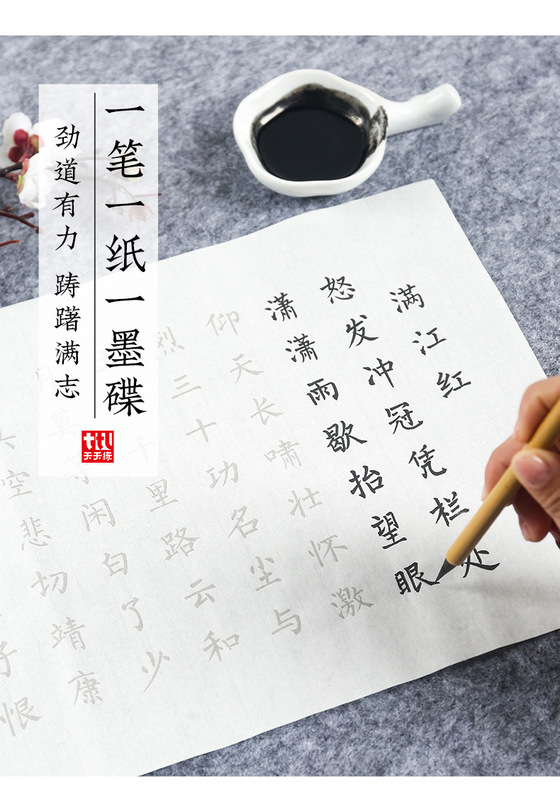 一笔一纸一墨碟
劲道有力 踌躇满志
天天练
满江红
怒发冲冠凭栏处
潇潇雨歇抬望眼
仰天长啸壮怀激
烈三十功名尘与
千里路云和
闲白了少
空悲切靖康
子恨